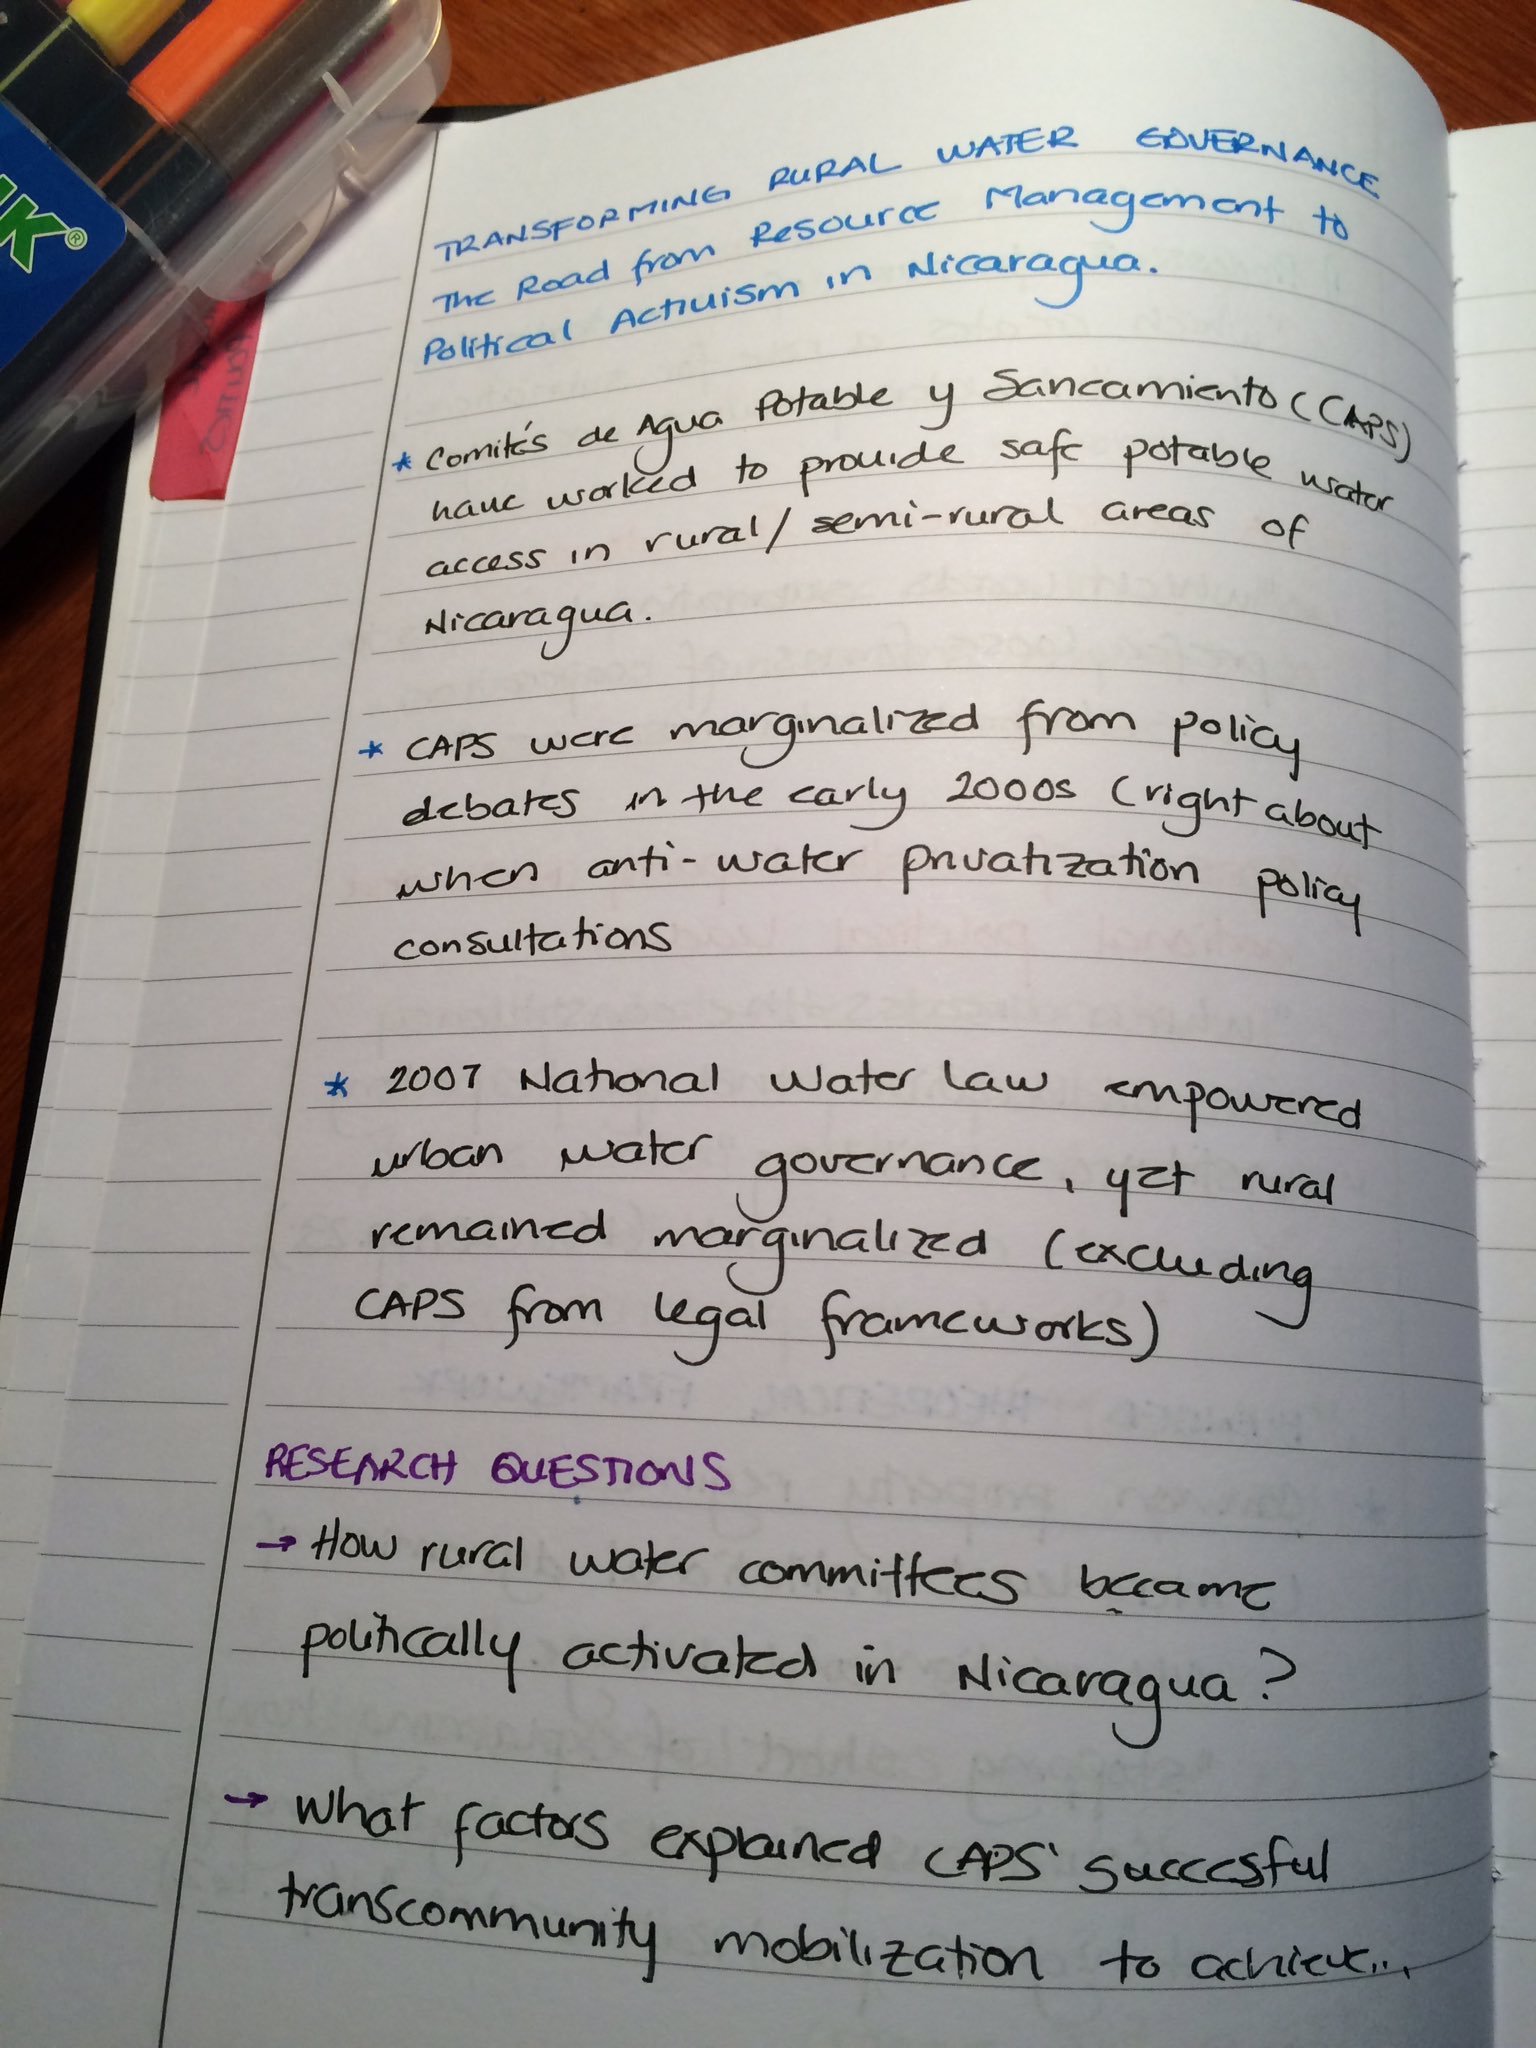 TRANSFORMING RURAL WATER GOVERNANCE
The Road from Resource Management to
Political Activism in Nicaragua.
* Comités de Agua Potable y Saneamiento (CAPS)
have worked to provide safe potable water
access in rural/semi-rural areas of
Nicaragua.
* CAPS were marginalized from policy
debates in the early 2000s (right about
when anti-water privatization policy
consultations
* 2007 National Water Law empowered
urban water governance, yet rural
remained marginalized (excluding
CAPS from legal frameworks)
RESEARCH QUESTIONS
→ How rural water committees became
politically activated in Nicaragua?
→ What factors explained CAPS' succesful
transcommunity mobilization to achieve...